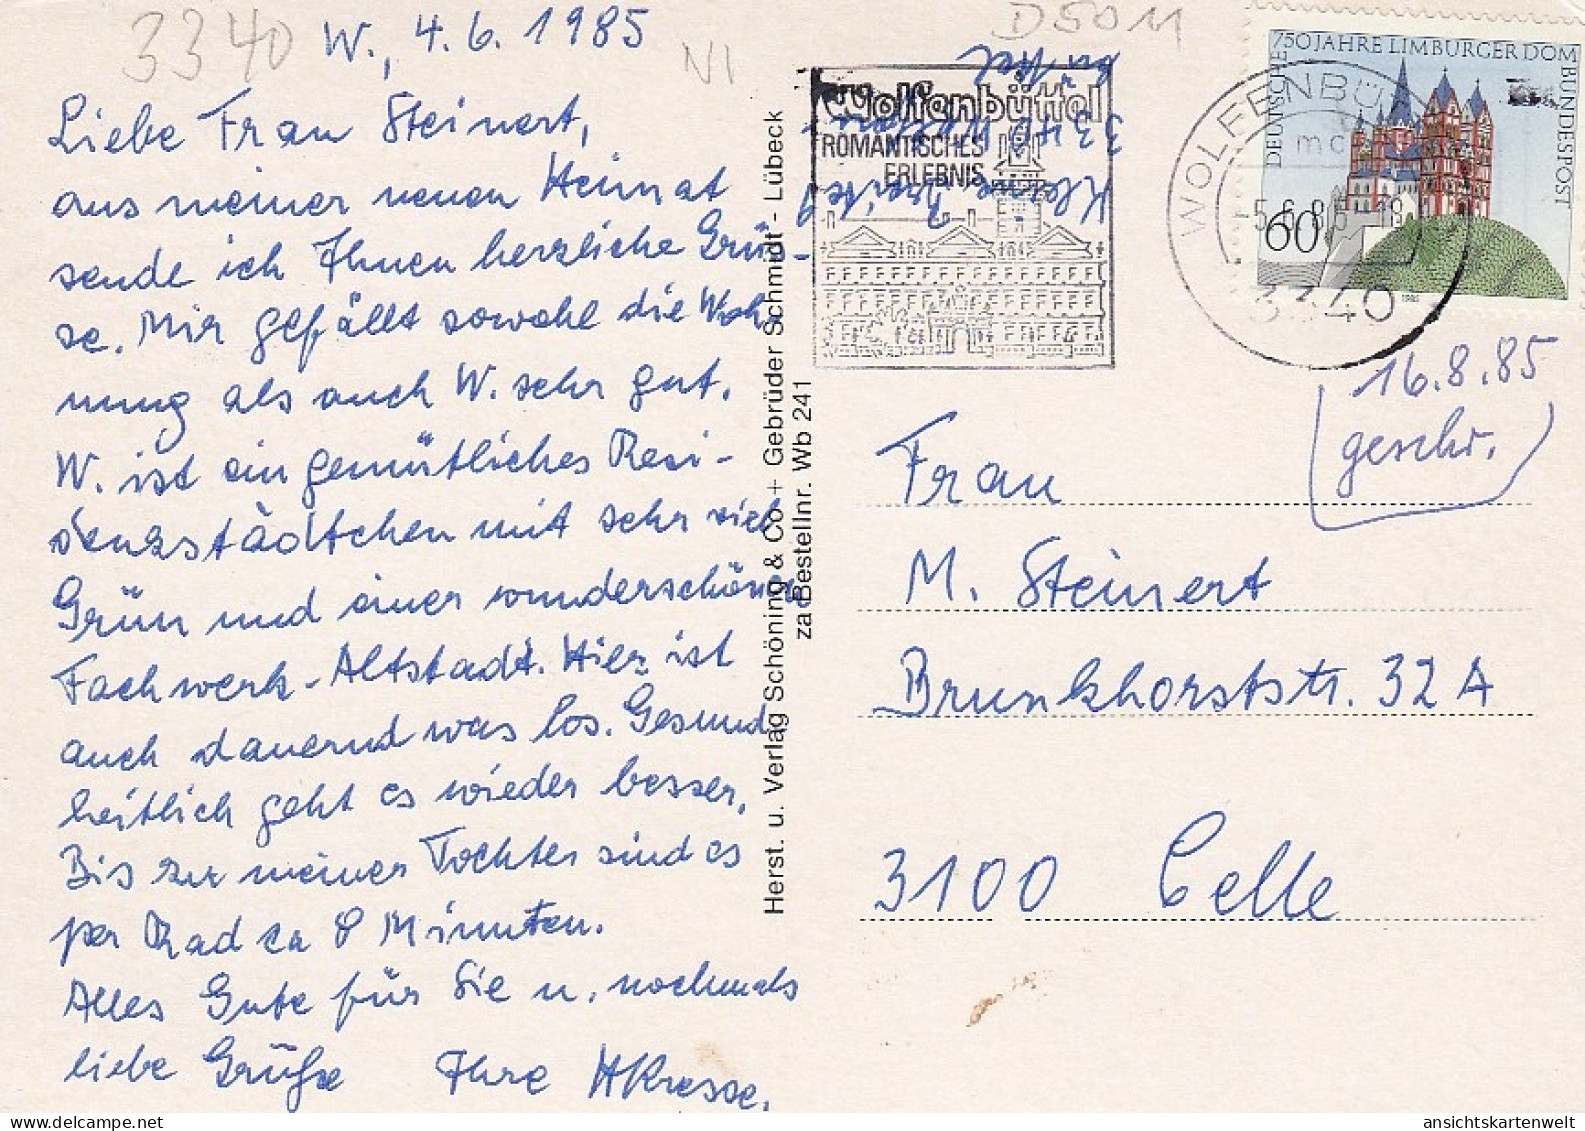 3340
W., 4.6.1985
NI
D5011
Liebe Frau Steinert,
aus meiner neuen Heimat
sende ich Ihnen herzliche Grü-
sse. Mir gefällt sowohl die Woh-
nung als auch W. sehr gut.
W. ist ein gemütliches Resi-
denzstädtchen mit sehr viel
Grün und einer wunderschönen
Fachwerk-Altstadt. Hier ist
auch dauernd was los. Gesund-
heitlich geht es wieder besser.
Bis zu meiner Tochter sind es
per Rad ca 8 Minuten.
Alles Gute für Sie u. nochmals
liebe Grüße Ihre HKresse.
Herst. u. Verlag Schöning & Co + Gebrüder Schmidt - Lübeck
Bestellnr. Wb 241
Kleine Breite 9
3340 Wolfen-
büttel
Wolfenbüttel
ROMANTISCHES
ERLEBNIS
WOLFENBÜ
mc
5.6.85-18
3340
750 JAHRE LIMBURGER DOM
DEUTSCHE
BUNDESPOST
60
1985
16.8.85
geschr.
Frau
M. Steinert
Brunkhorststr. 32A
3100 Celle
ansichtskartenwelt